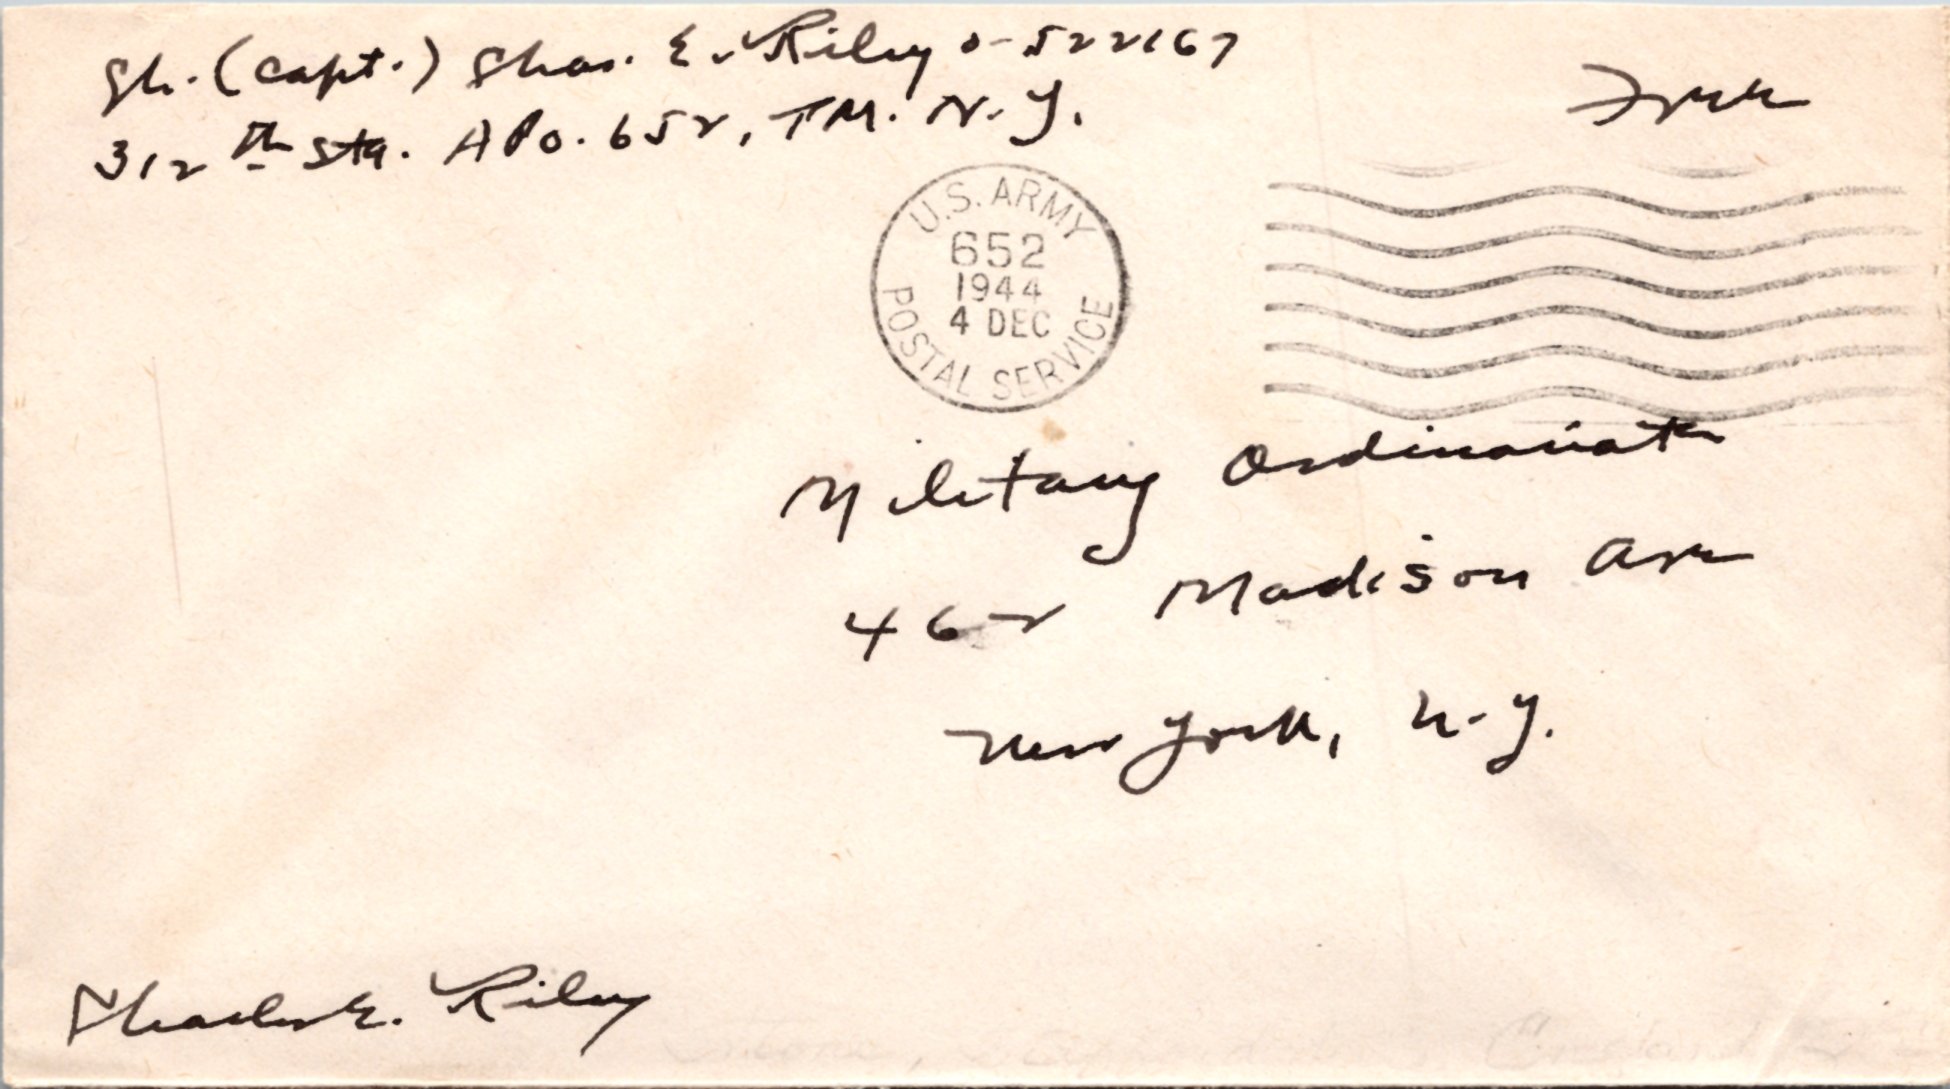 Ch. (Capt.) Chas. E. Riley O-522167
312th Sta. APO. 652, PM. N.Y.
Free
U.S. ARMY
652
1944
4 DEC
POSTAL SERVICE
Military Ordinariate
462 Madison Ave
New York, N.Y.
Charles E. Riley